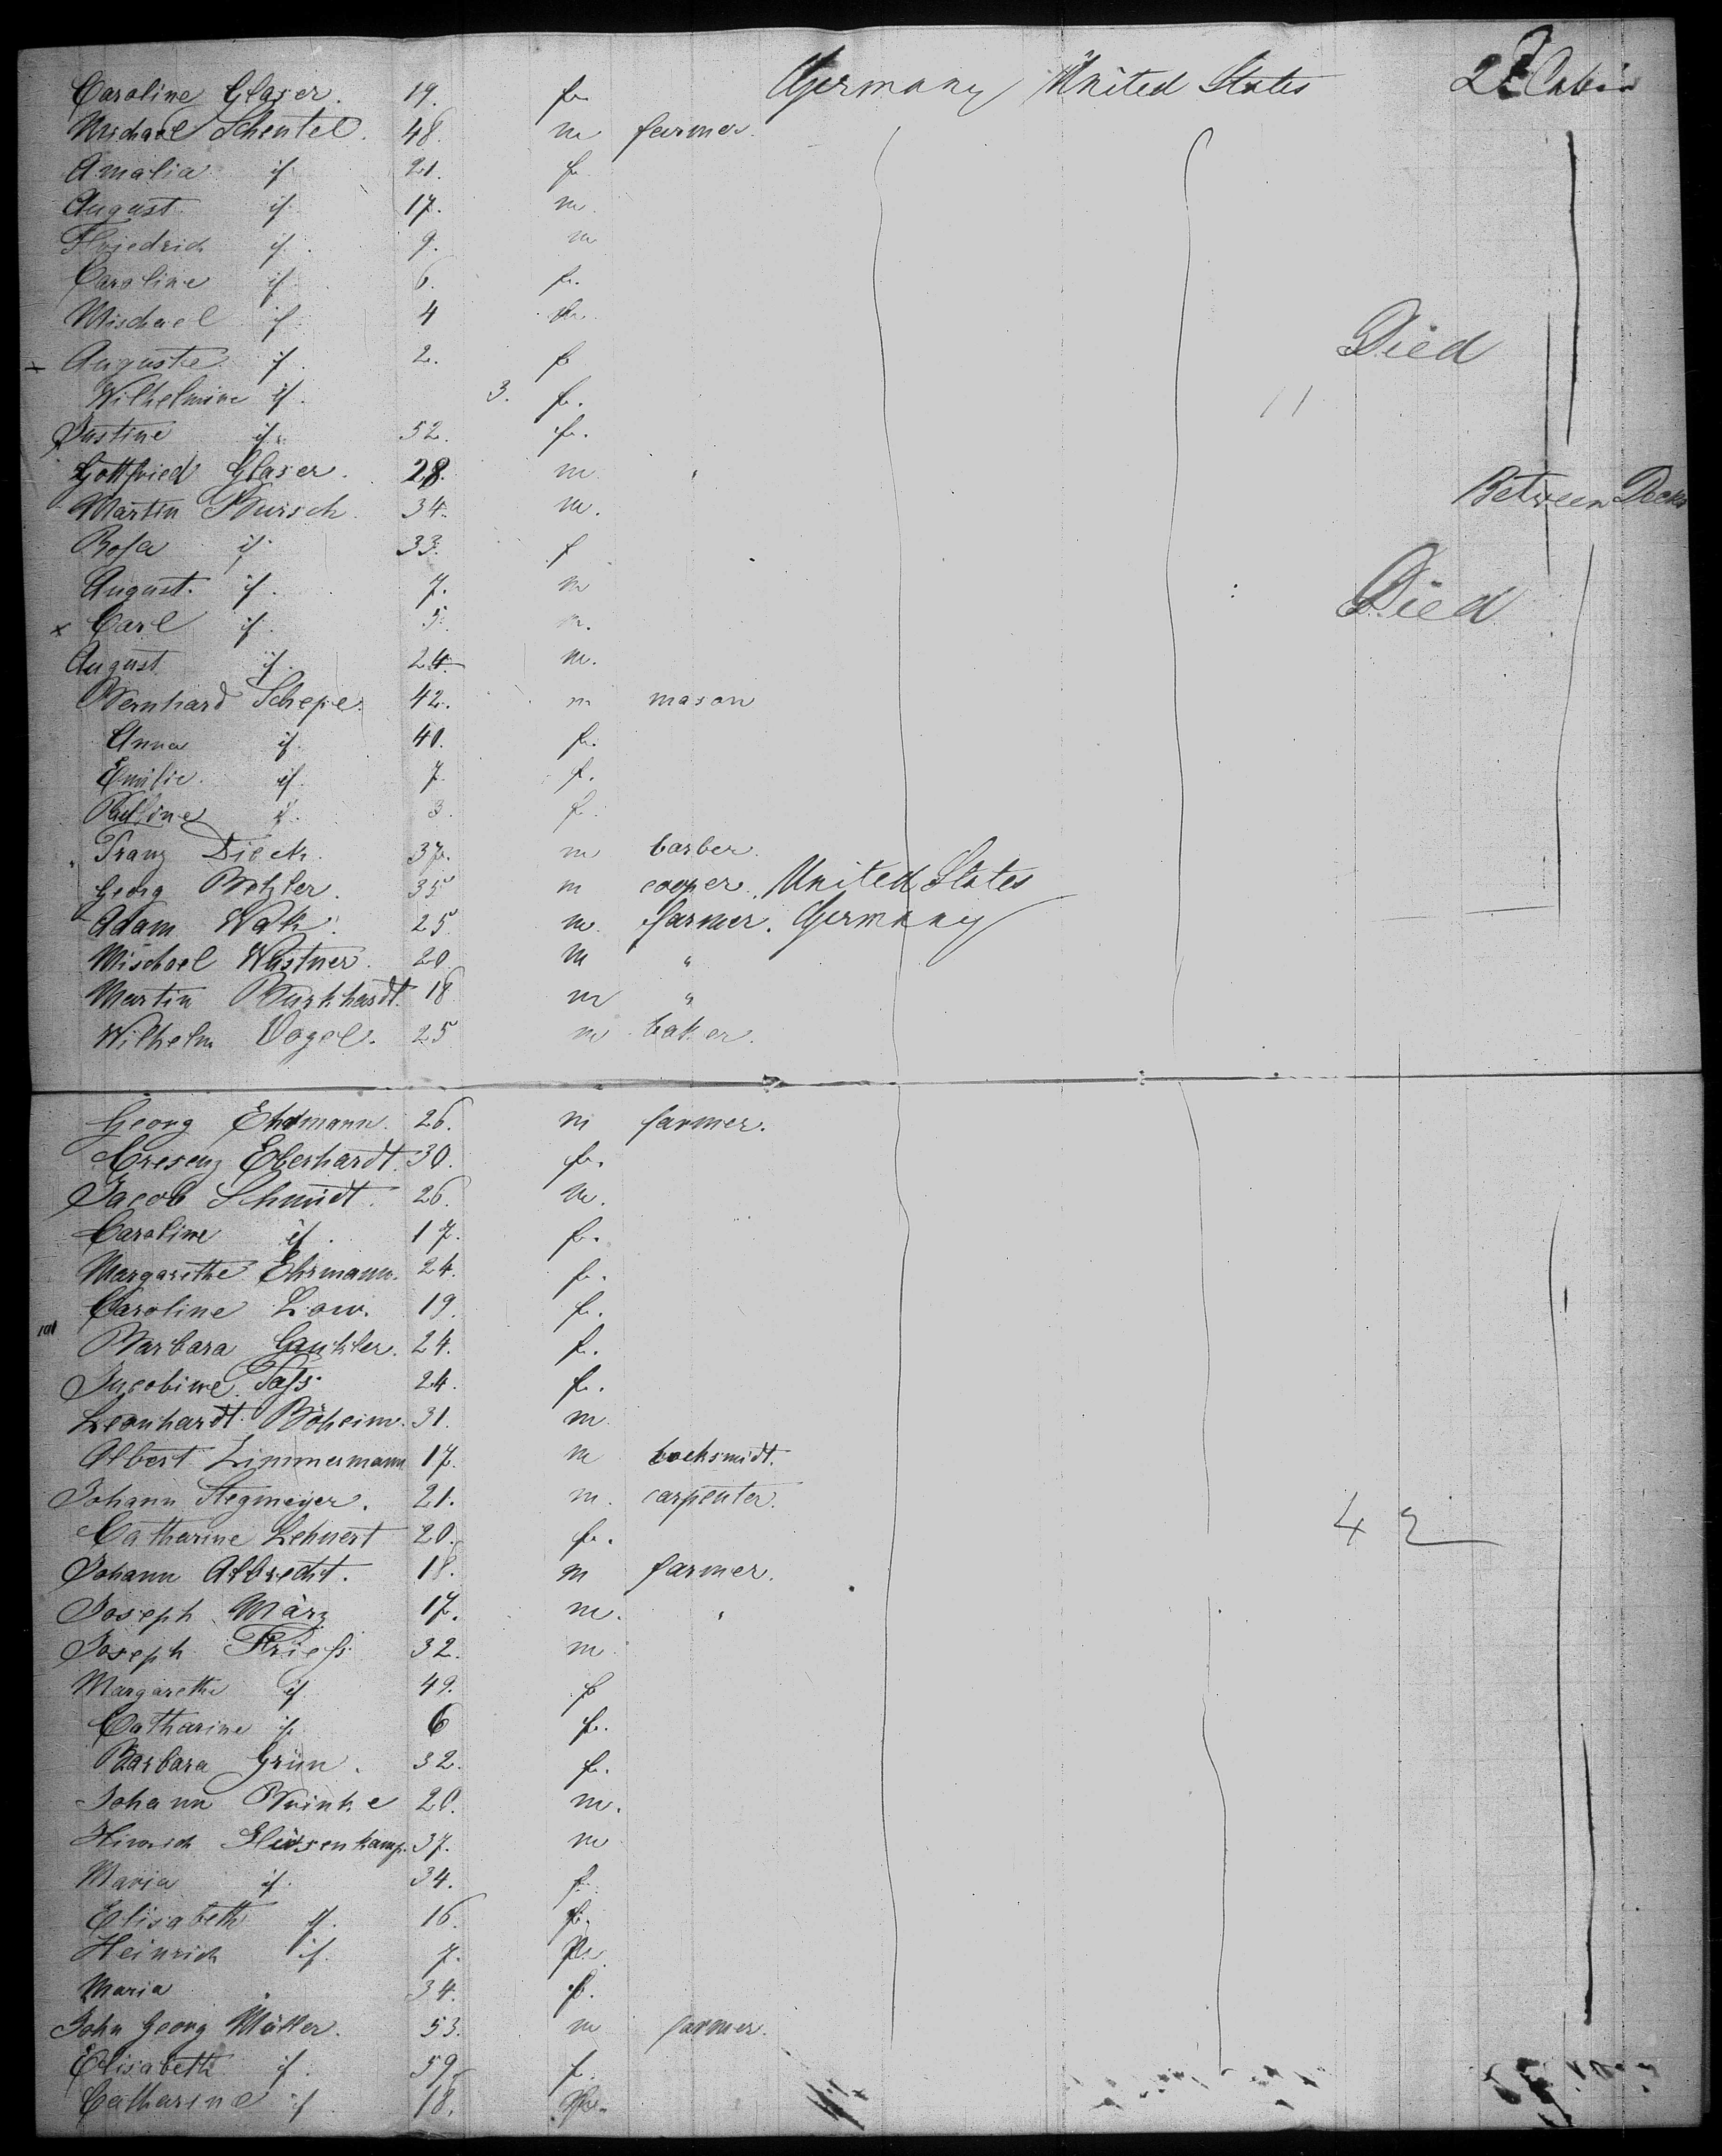 Caroline Glaser. 19. f. Germany United States 2d Cabin
Michael Schentel. 48. m farmer.
Amalia if 21. f
August if 17. m.
Friedrich if. 9. m
Caroline if 6. f.
Mischael if 4
Auguste if. 2. f Died
Wilhelmine if. 3. f.
Justine if. 52. f.
Gottfried Glaser. 28. m
Martin Bursch. 34. m. Between Decks
Rosa if 33. f
August. if. 7. m
x Carl if. 5. m. Died
August if. 24. m.
Bernhard Schepe. 42. m mason
Anna if. 40. f.
Emilie. if. 7. f.
Pauline if. 3. f.
Franz Dieck. 37. m barber.
Georg Betzler. 35 m cooper. United States
Adam 25. m. farmer. Germany
Mischael Wustner. 20 m "
Martin Burkhardt. 18 m "
Wilhelm Vogel. 25 m baker.
Georg Ehrmann. 26. m farmer.
Cresenz Eberhardt. 30. f.
Jacob Schmidt. 26. m.
Caroline if. 17. f.
Margarethe Ehrmann. 24. f.
Caroline Low. 19. f.
Barbara Gaukler. 24. f.
Jacobine 24. f.
Leonhardt Böheim. 31. m.
Albert Zimmermann 17. m locksmidt.
Johann Stegmeyer. 21. m. carpenter.
Catharine Lehnert 20. f. 42
Johann Albrecht. 18. m farmer.
Joseph März 17. m. "
Joseph Frieß 32. m
Margarethe if 49. f
Catharine if 6 f.
Barbara Grün. 32. f.
Johann Brinke 20. m.
Hinrich 37. m
Maria if. 34. f.
Elisabeth if. 16. f.
Heinrich if. 7.
Maria 34. f.
John Georg Müller. 53. m farmer.
Elisabeth if. 59. f.
Catharina if 18.